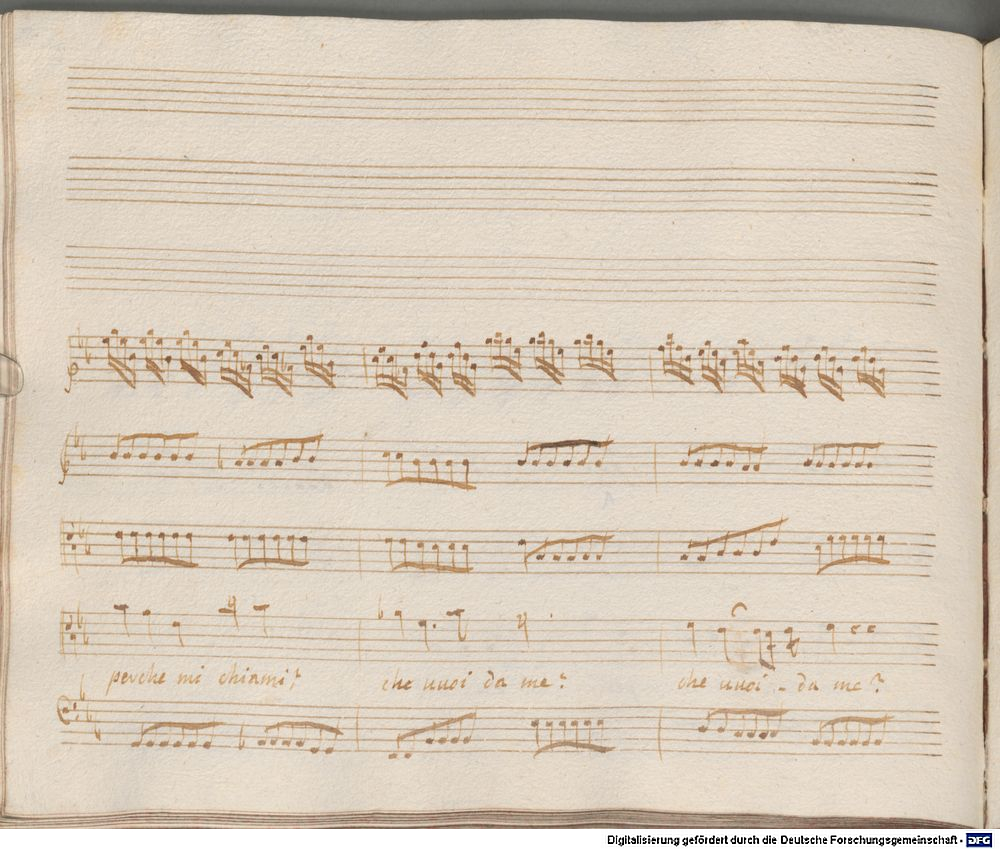 perche mi chiami? che vuoi da me? che vuoi - da me?
Digitalisierung gefördert durch die Deutsche Forschungsgemeinschaft - DFG